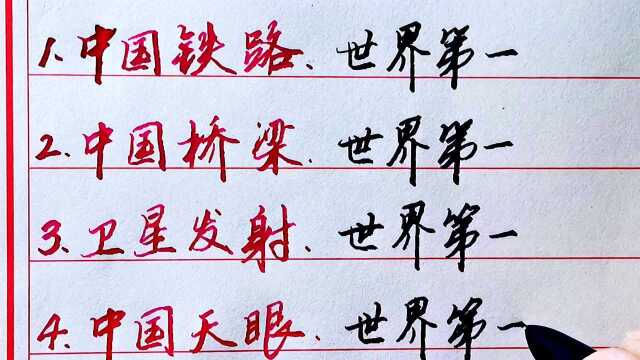 1.中国铁路.世界第一
2.中国桥梁.世界第一
3.卫星发射.世界第一
4.中国天眼.世界第一